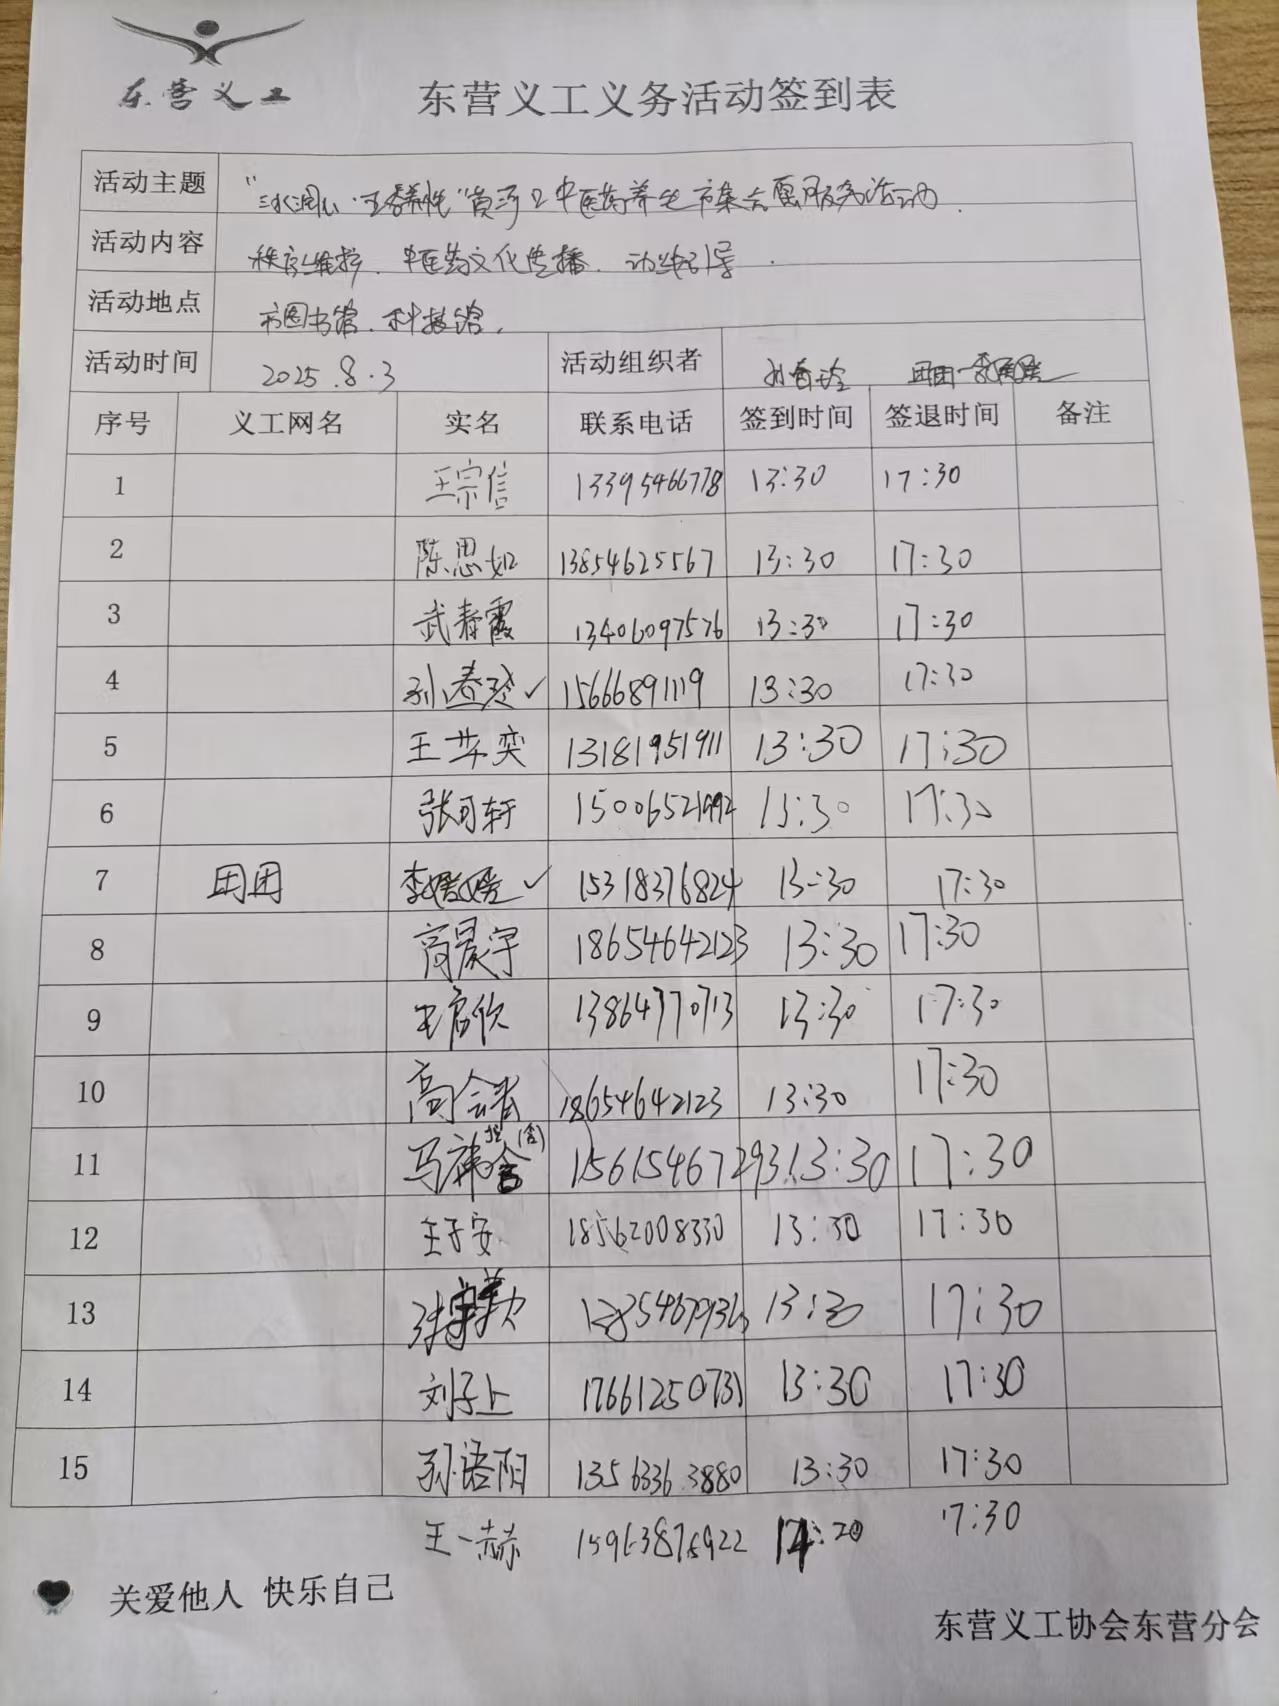 东营义工
东营义工义务活动签到表
活动主题 "三水润心·五香养性"黄河口中医药养生市集志愿服务活动.
活动内容 秩序维护、中医药文化传播、动线引导.
活动地点 市图书馆、科技馆,
活动时间 2025.8.3 活动组织者 孙春玲 团团-李媛媛
序号 义工网名 实名 联系电话 签到时间 签退时间 备注
1 王宗信 13395466778 13:30 17:30
2 陈思如 13854625567 13:30 17:30
3 武春霞 13406097576 13:30 17:30
4 孙春玲✓ 15666891119 13:30 17:30
5 王苹奕 13181951911 13:30 17:30
6 张可轩 15006521992 13:30 17:30
7 团团 李媛媛✓ 15318376824 13:30 17:30
8 商晨宇 18654642123 13:30 17:30
9 13864770713 13:30 17:30
10 高 18654642123 13:30 17:30
11 马 15615467293 13:30 17:30
12 王子安 18562008330 13:30 17:30
13 13:30 17:30
14 刘子上 17661250731 13:30 17:30
15 孙语阳 13563363880 13:30 17:30
王一赫 15963876922 14:20 17:30
关爱他人 快乐自己
东营义工协会东营分会